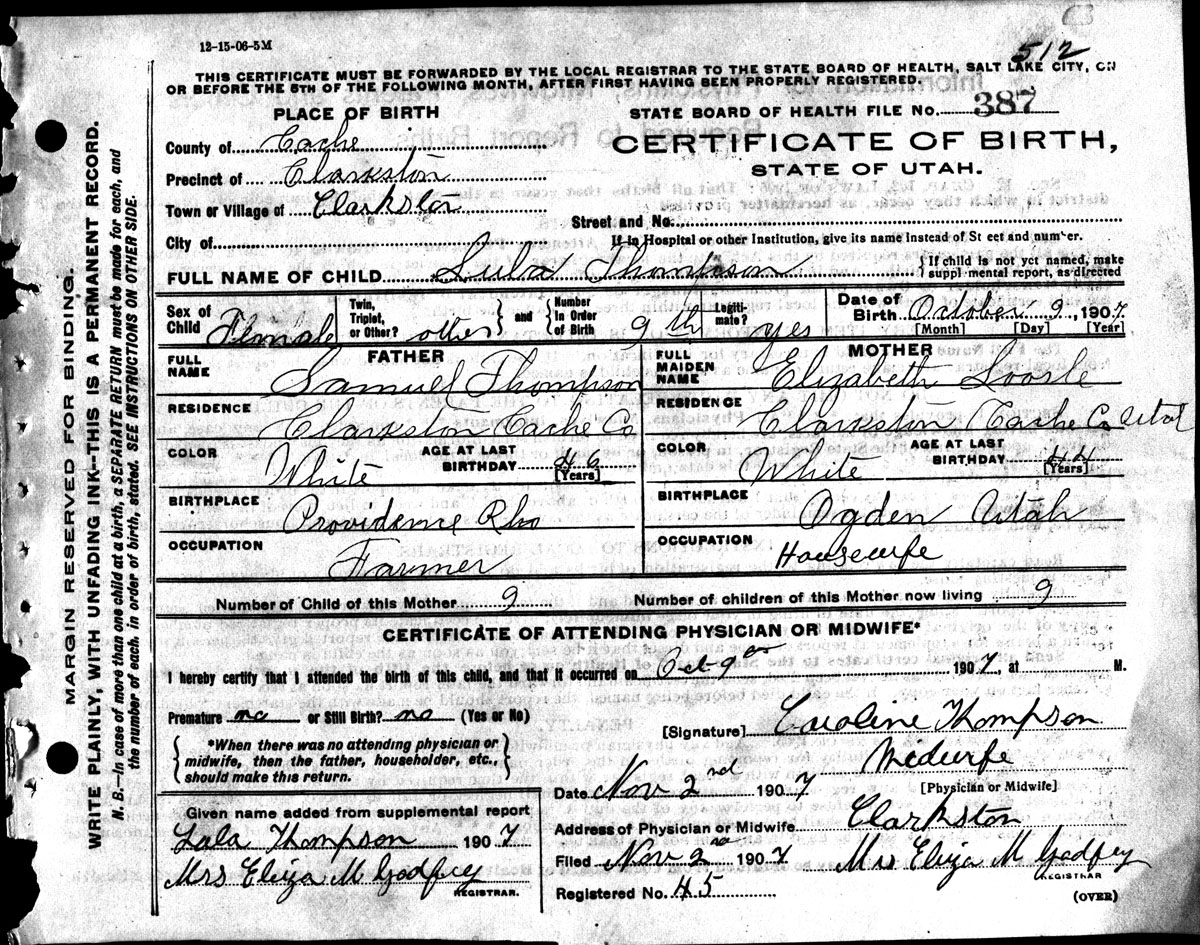 12-15-06-5M
512
THIS CERTIFICATE MUST BE FORWARDED BY THE LOCAL REGISTRAR TO THE STATE BOARD OF HEALTH, SALT LAKE CITY, ON
OR BEFORE THE 5TH OF THE FOLLOWING MONTH, AFTER FIRST HAVING BEEN PROPERLY REGISTERED.
PLACE OF BIRTH
STATE BOARD OF HEALTH FILE No. 387
County of Cache
CERTIFICATE OF BIRTH,
Precinct of Clarkston
STATE OF UTAH.
Town or Village of Clarkston
Street and No.
City of
If in Hospital or other Institution, give its name instead of St eet and number.
FULL NAME OF CHILD Lula Thompson
{ If child is not yet named, make
suppl mental report, as directed
Sex of Child Female
Twin, Triplet, or Other? other } and { Number In Order of Birth 9th
Legitimate? yes
Date of Birth October 9, 1907
[Month] [Day] [Year]
FATHER
MOTHER
FULL NAME Samuel Thompson
FULL MAIDEN NAME Elizabeth Loosle
RESIDENCE Clarkston Cache Co
RESIDENCE Clarkston Cache Co Utah
COLOR White AGE AT LAST BIRTHDAY 46 [Years]
COLOR White AGE AT LAST BIRTHDAY 44 [Years]
BIRTHPLACE Providence Rho
BIRTHPLACE Ogden Utah
OCCUPATION Farmer
OCCUPATION Housewife
Number of Child of this Mother 9 Number of children of this Mother now living 9
CERTIFICATE OF ATTENDING PHYSICIAN OR MIDWIFE*
I hereby certify that I attended the birth of this child, and that it occurred on Oct 9 1907, at M.
Premature no or Still Birth? no (Yes or No)
[Signature] Caroline Thompson
Midwife
[Physician or Midwife]
{ *When there was no attending physician or
midwife, then the father, householder, etc.,
should make this return. }
Date Nov 2nd 1907
Address of Physician or Midwife Clarkston
Given name added from supplemental report
Lala Thompson 1907
Mrs Eliza M Godfrey
REGISTRAR.
Filed Nov 2nd 1907 Mrs Eliza M Godfrey
REGISTRAR
Registered No. 45
(OVER)
MARGIN RESERVED FOR BINDING.
WRITE PLAINLY, WITH UNFADING INK--THIS IS A PERMANENT RECORD.
N. B.--In case of more than one child at a birth, a SEPARATE RETURN must be made for each, and
the number of each, in order of birth, stated. SEE INSTRUCTIONS ON OTHER SIDE.